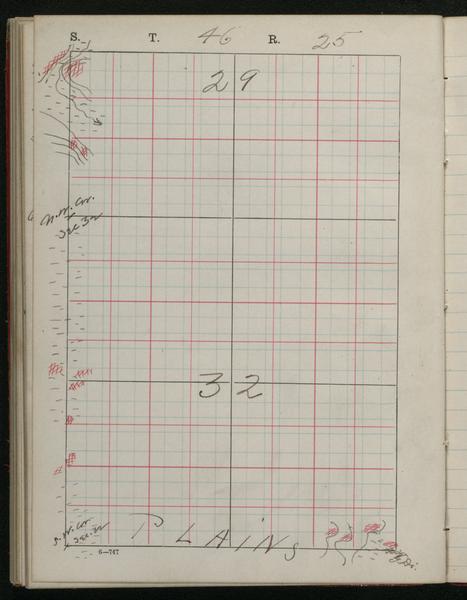 S. T. 46 R. 25
29
N.W. Cor.
Sec. 32
32
S.W. Cor.
Sec. 32
PLAINS
6—747